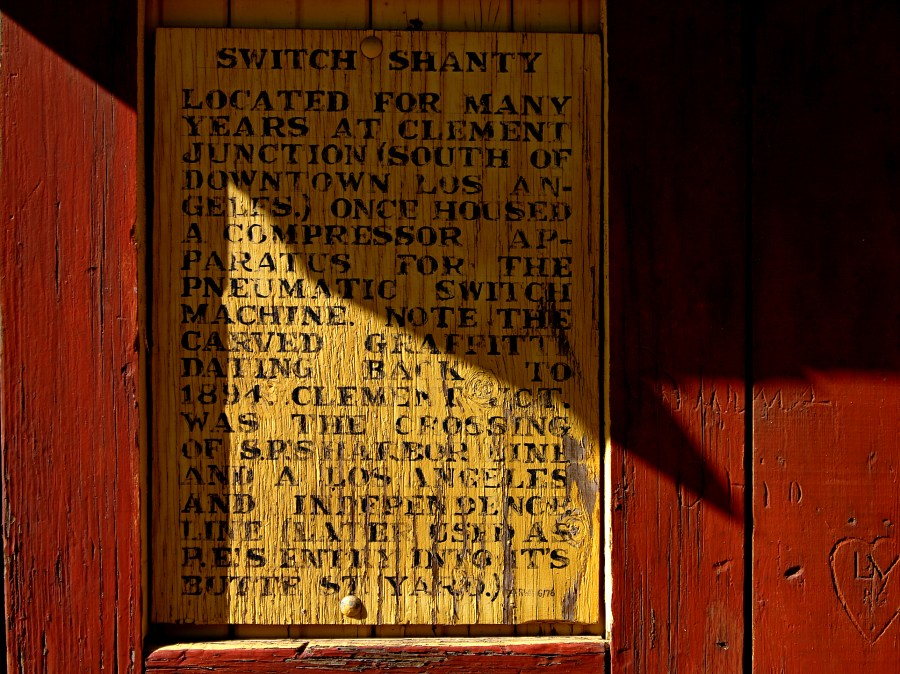 SWITCH SHANTY
LOCATED FOR MANY
YEARS AT CLEMENT
JUNCTION (SOUTH OF
DOWNTOWN LOS AN-
GELES.) ONCE HOUSED
A COMPRESSOR AP-
PARATUS FOR THE
PNEUMATIC SWITCH
MACHINE. NOTE THE
CARVED GRAFFITI
DATING BACK TO
1894. CLEMENT JCT.
WAS THE CROSSING
OF S.P.'S HARBOR LINE
AND A LOS ANGELES
AND INDEPENDENCE
LINE (LATER USED AS
P.E'S ENTRY INTO IT'S
BUTTE ST. YARD.)
6/76